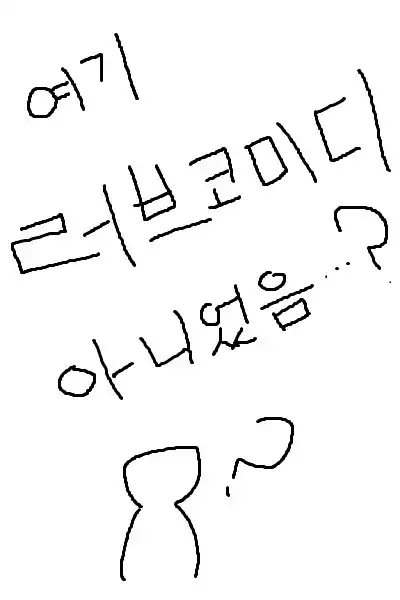 여기
러브코미디
아니었음...?
?